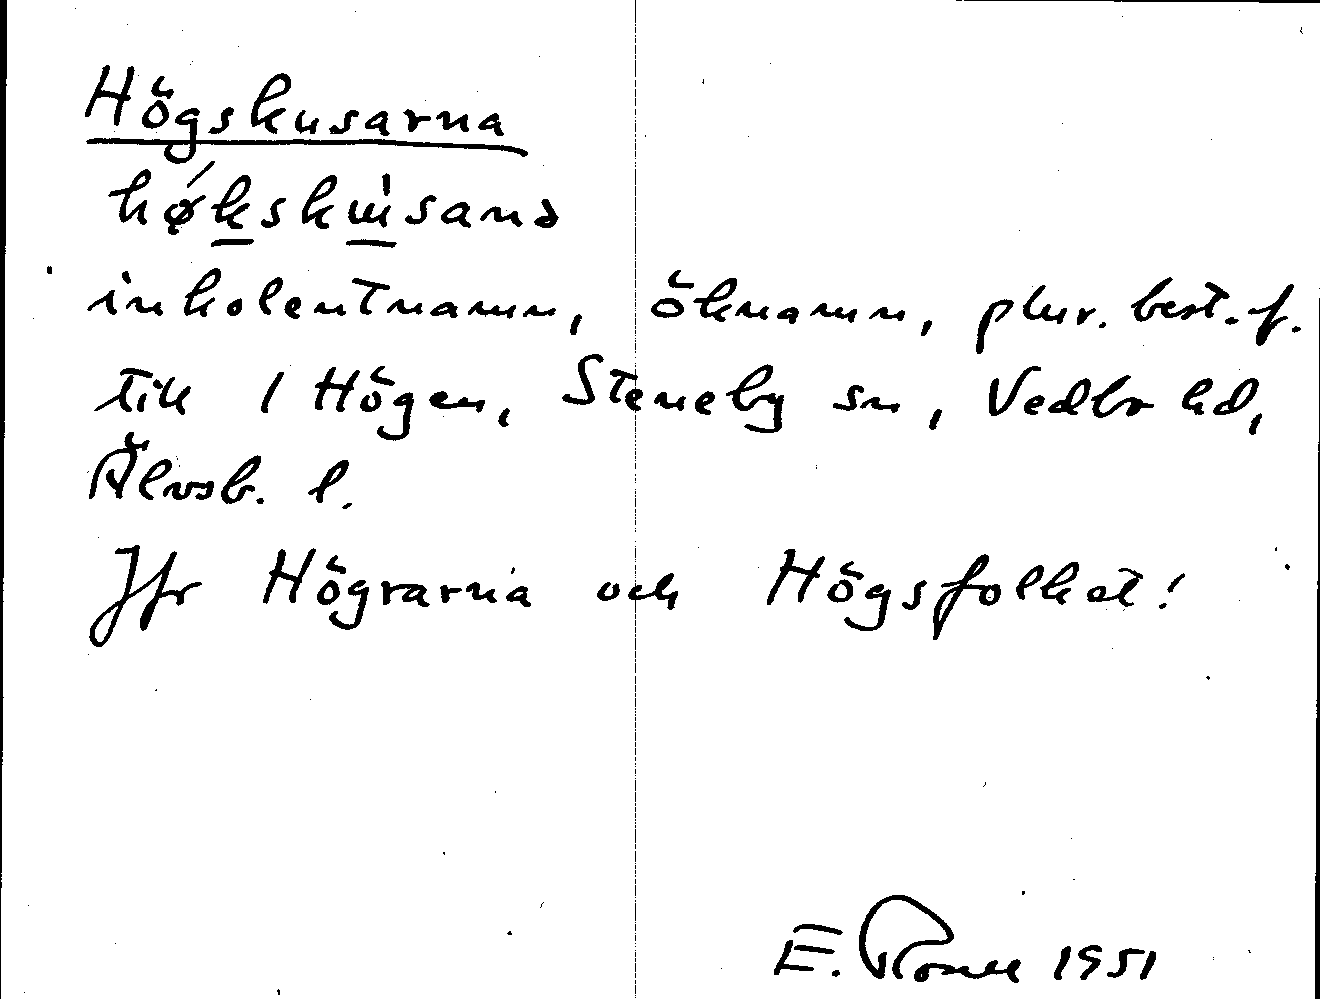 Högskusarna
hǿk̲skɯ̲̍sanə
inkolentnamn, öknamn, plur. best. f.
till 1 Högen, Steneby sn, Vedbo hd,
Älvsb. l.
Jfr Högrarna och Högsfolket!
E. 1951